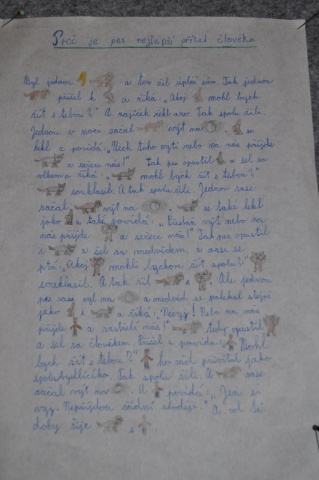 Proč je pes nejlepší přítel člověka
Byl jednou 1 a ten žil úplně sám. Tak jednou
přišel k a říká: „Ahoj mohl bych
žít s tebou?" A zajíček řekl ano. Tak spolu žili.
Jednou v noci začal výt na . se
lekl a povídá: „Nech toho vytí nebo na nás přijde
a sežere nás!" Tak pes opustil a šel za
vlkem a říká: „ mohl bych žít s tebou?"
souhlasil. A tak spolu žili. Jednou zase
začal výt na . se také lekl
jako a také povídá: „ výt nebo na
nás přijde a sežere nás!" Tak pes opustil
a šel za medvědem a zase se
ptá: „Ahoj mohli bychom žít spolu?"
souhlasil. A tak žil s . Ale jednou
pes zase vyl na a medvěd se polekal stejně
jako a říká: „Nevyj! Nebo na nás
přijde a zastřelí nás!" tedy opustil
a šel za člověkem. Přišel a povídá: „ Mohl
bych žít s tebou?" ho rád přivítal jako
spolubydlícího. Tak spolu žili. A zase
začal výt na . A povídá: „Jen si
vyj. Nepřijdou žádní zloději." A od té
doby žije s